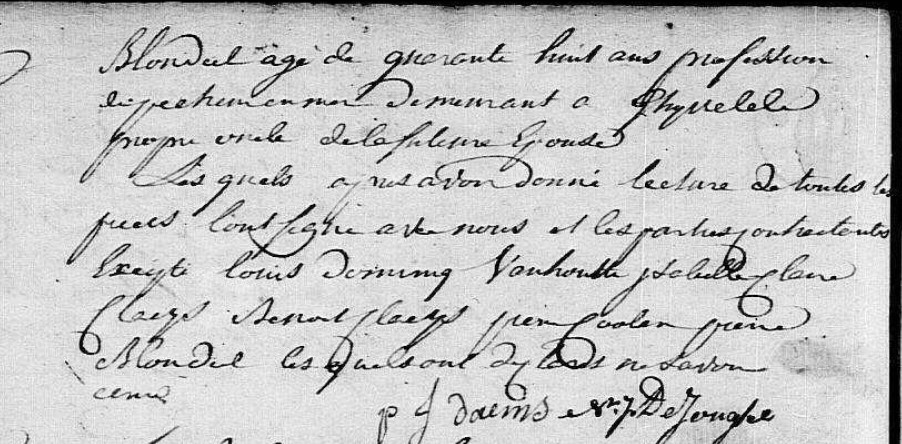 Blondeel agé de quarante huit ans profession
de pecheur en mer demeurant a Ghyvelde
propre oncle de la future Epouse
Les quels apres avoir donné lecture de toutes les
pieces l'ont signé avec nous et les parties contractantes
Excepté louis dominiq Vanhoutte isabelle Claire
Claeys Benoit Claeys pierre Coolen pierre
Blondeel les quels ont declarés ne savoir
p J daems De Jonghe